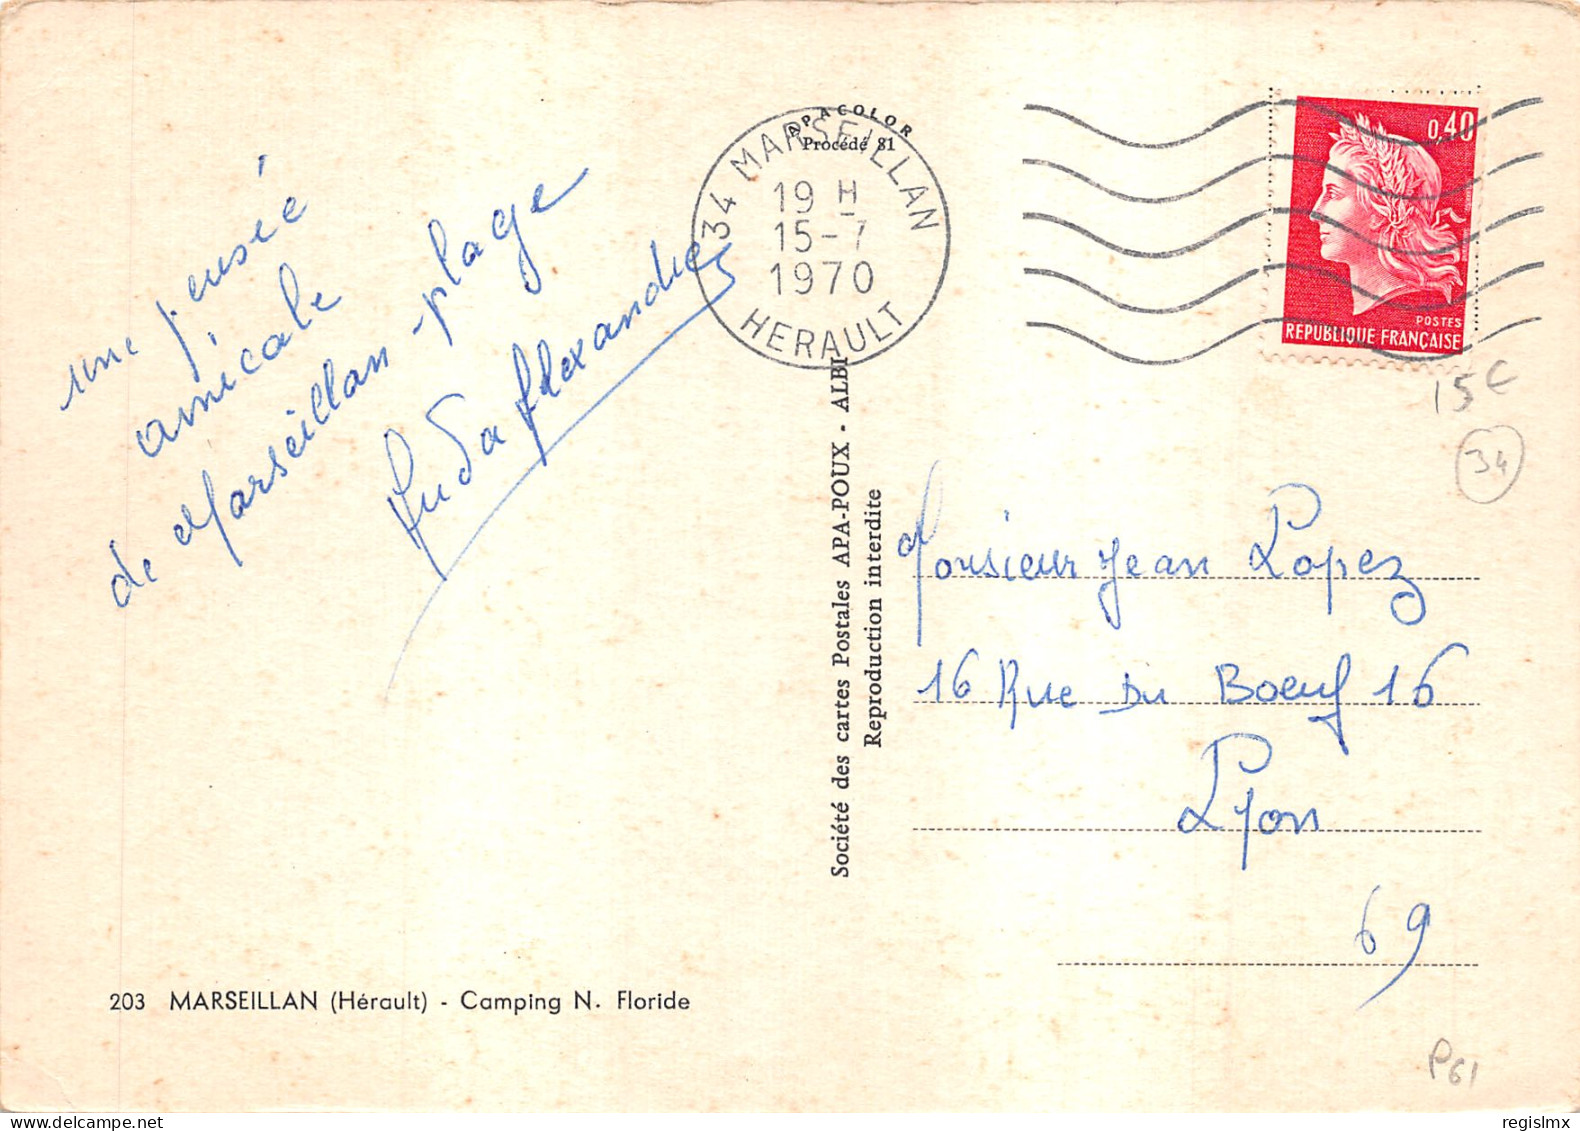 une pensée
amicale
de Marseillan-plage
Alexandre
203 MARSEILLAN (Hérault) - Camping N. Floride
APACOLOR
Procédé 81
34 MARSEILLAN
19 H
15-7
1970
HERAULT
Société des cartes Postales APA-POUX - ALBI
Reproduction interdite
0,40
POSTES
REPUBLIQUE FRANÇAISE
15€
34
Monsieur Jean Lopez
16 Rue Du Boeuf 16
Lyon
69
P61
regislmx